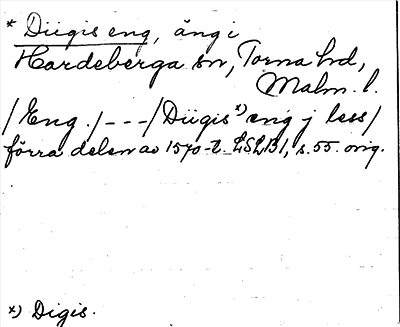 * Diigis eng, äng i
Hardeberga sn, Torna hd,
Malm. l.
/Eng./---/Diigis *) eng j less/
förra delen av 1570-t. LSLB1, s. 55. orig.
*) Digis.